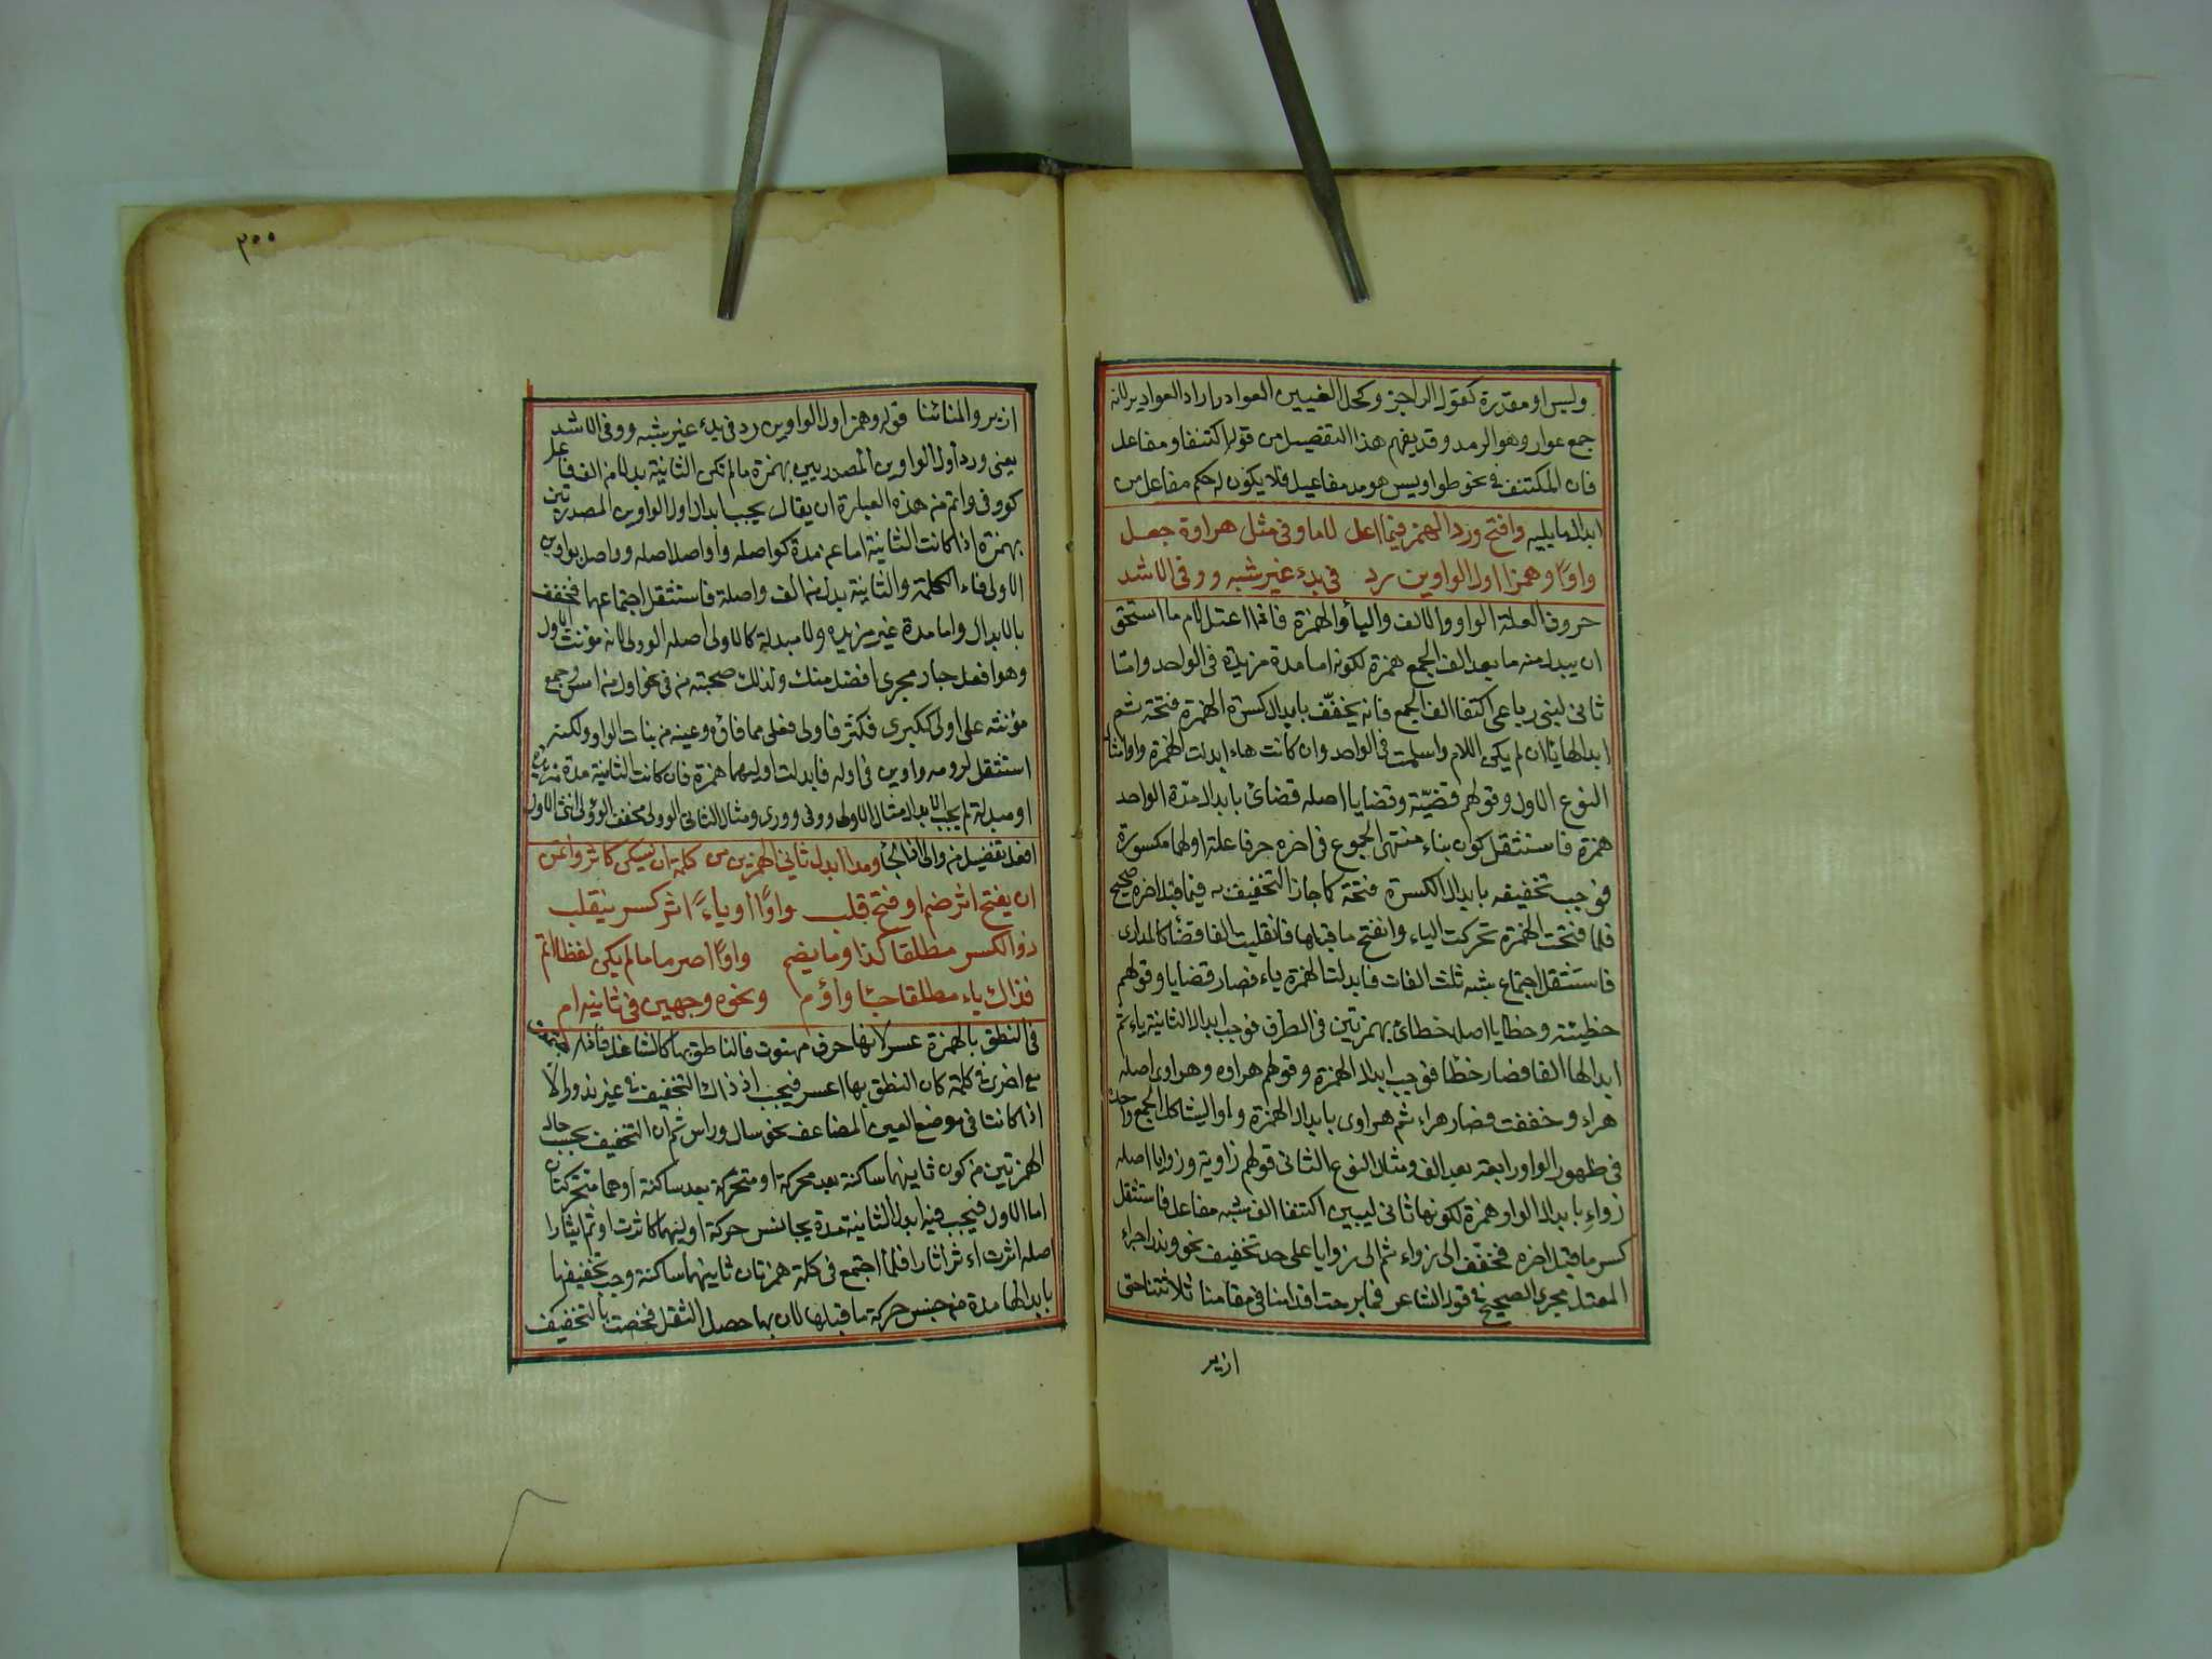 وليس او مقدرة كقول الراجز وكحل العينين العوادر اراد العوادير لانه
جمع عوار وهو الرمد وقد يفهم هذا التفصيل من قوله اكتنفا ومفاعل
فان المكتنف في نحو طواويس هو مد مفاعيل فلا يكون له حكم مفاعل من
ابدال ما يليه وافتح ورد الهمز فيما اعل لاما وفي مثل هراوة جعل
واوًا وهمزا اول الواوين رد في بدء غير شبه ووفى الاشد
حروف العلة الواو والالف والياء والهمزة فاذا اعتل لام ما استحق
ان يبدل منه ما بعد الف الجمع همزة لكونه اما مدة مزيدة في الواحد واما
ثاني لينين رباعي اكتنفا الف الجمع فانه يخفف بابدال كسرة الهمزة فتحة ثم
ابدالها يا ان لم يكن اللام واوا سلمت في الواحد وان كانت هاء ابدلت الهمزة واوا مثال
النوع الاول وقولهم قضيّة وقضايا اصله قضائي بابدال مدة الواحد
همزة فاستثقل كون بناء منتهى الجموع في اخره حرفا علة اولهما مكسورة
فوجب تخفيفه بابدال الكسرة فتحة كما جاز التخفيف به فيما قبل اخره صحيح
فلما فتحت الهمزة تحركت الياء وانفتح ما قبلها فانقلبت الفا فقضاء كالمدارى
فاستثقل اجتماع شبه ثلث الفات فابدلت الهمزة ياء فصار قضايا وقولهم
خطيئة وخطايا اصله خطائئ بهمزتين في الطرف فوجب ابدال الثانية ياء ثم
ابدالها الفا فصار خطأا فوجب ابدال الهمزة وقولهم هراوه وهراوى اصله
هراء وخففت فصار هراء ثم هراوى بابدال الهمزة واوا ليشاكل الجمع واحده
في ظهور الواو رابعة بعد الف ومثال النوع الثاني قولهم زاوية وزوايا اصله
زواءِ بابدال الواو همزة لكونها ثاني لينين اكتنفا الف شبه مفاعل فاستثقل
كسر ما قبل اخره فخفّف الى زواء ثم الى زوايا على حد تخفيف نحو وندر اجراء
المعتل مجرى الصحيح في قول الشاعر فما برحت اقدامنا في مقامنا ثلاثتنا حتى
ازير
٢٥٥
ازير والمنائنا قوله وهمزا اول الواوين رد في بدء غير شبه ووفى الاشد
يعني ورد اول الواوين المصدريين بهمزة ما لم تكن الثانية بدلا من الف فاعل
كووفي واتم من هذه العبارة ان يقال يجب ابدال اول الواوين المصدرتين
بهمزة اذا كانت الثانية اما غير مدة كواصله واواصل اصله وواصل بواوين
الاولى فاء الكلمة والثانية بدل من الف واصلة فاستثقل اجتماعهما فخفف
بالابدال واما مدة غير مزيده ولا مبدلة كالاولى اصله الوولى لانه مؤنث الاول
وهو افعل جار مجرى افضل منك ولذلك صحبته من في نحو اول من امس وجمع
مؤنثه على اولى ككبرى فكثر فاولى فعلى مما فاؤه وعينه من بنات الواو ولكنه
استثقل لزومه واوين في اوله فابدلت اوليهما همزة فان كانت الثانية مدة مزيدة
او مبدلة لم يجب الابدال مثال الاول ووفى وورى ومثال الثاني الوولى مخفف الوؤلى انثى الاول
افعل تفضيل من وال اذا لجأ ومدا ابدل ثاني الهمزين من كلمة ان يسكن كاثر وائتمن
ان يفتح اثر ضم او فتح قلب واوًا او ياءً اثر كسر ينقلب
ذو الكسر مطلقا كذا وما يضم واوًا اصر ما مالم يكن لفظا اتم
فذاك ياء مطلقا جا واؤم ونحوه وجهين في ثانيه ام
في النطق بالهمزة عسر لانها حرف مهتوت فالناطق بها كالساعل فاذا اجتمعت
مع اخرى في كلمة كان النطق بها اعسر فيجب اذ ذاك التخفيف في غير ندور الا
اذا كانتا في موضع العين المضاعف نحو سال وراس ثم ان التخفيف بحسب حال
الهمزتين من كون ثانيهما ساكنة بعد محركة او متحركة بعد ساكنة او هما متحركتان
اما الاول فيجب فيه ابدال الثانية مدة يجانس حركة اوليهما كاثرت اوثر ايثارا
اصله اثرت اءثر ائثارا فلما اجتمع في كلمة همزتان ثانيهما ساكنة وجب تخفيفها
بابدالها مدة من جنس حركة ما قبلها لان بها حصل الثقل فخصت بالتخفيف